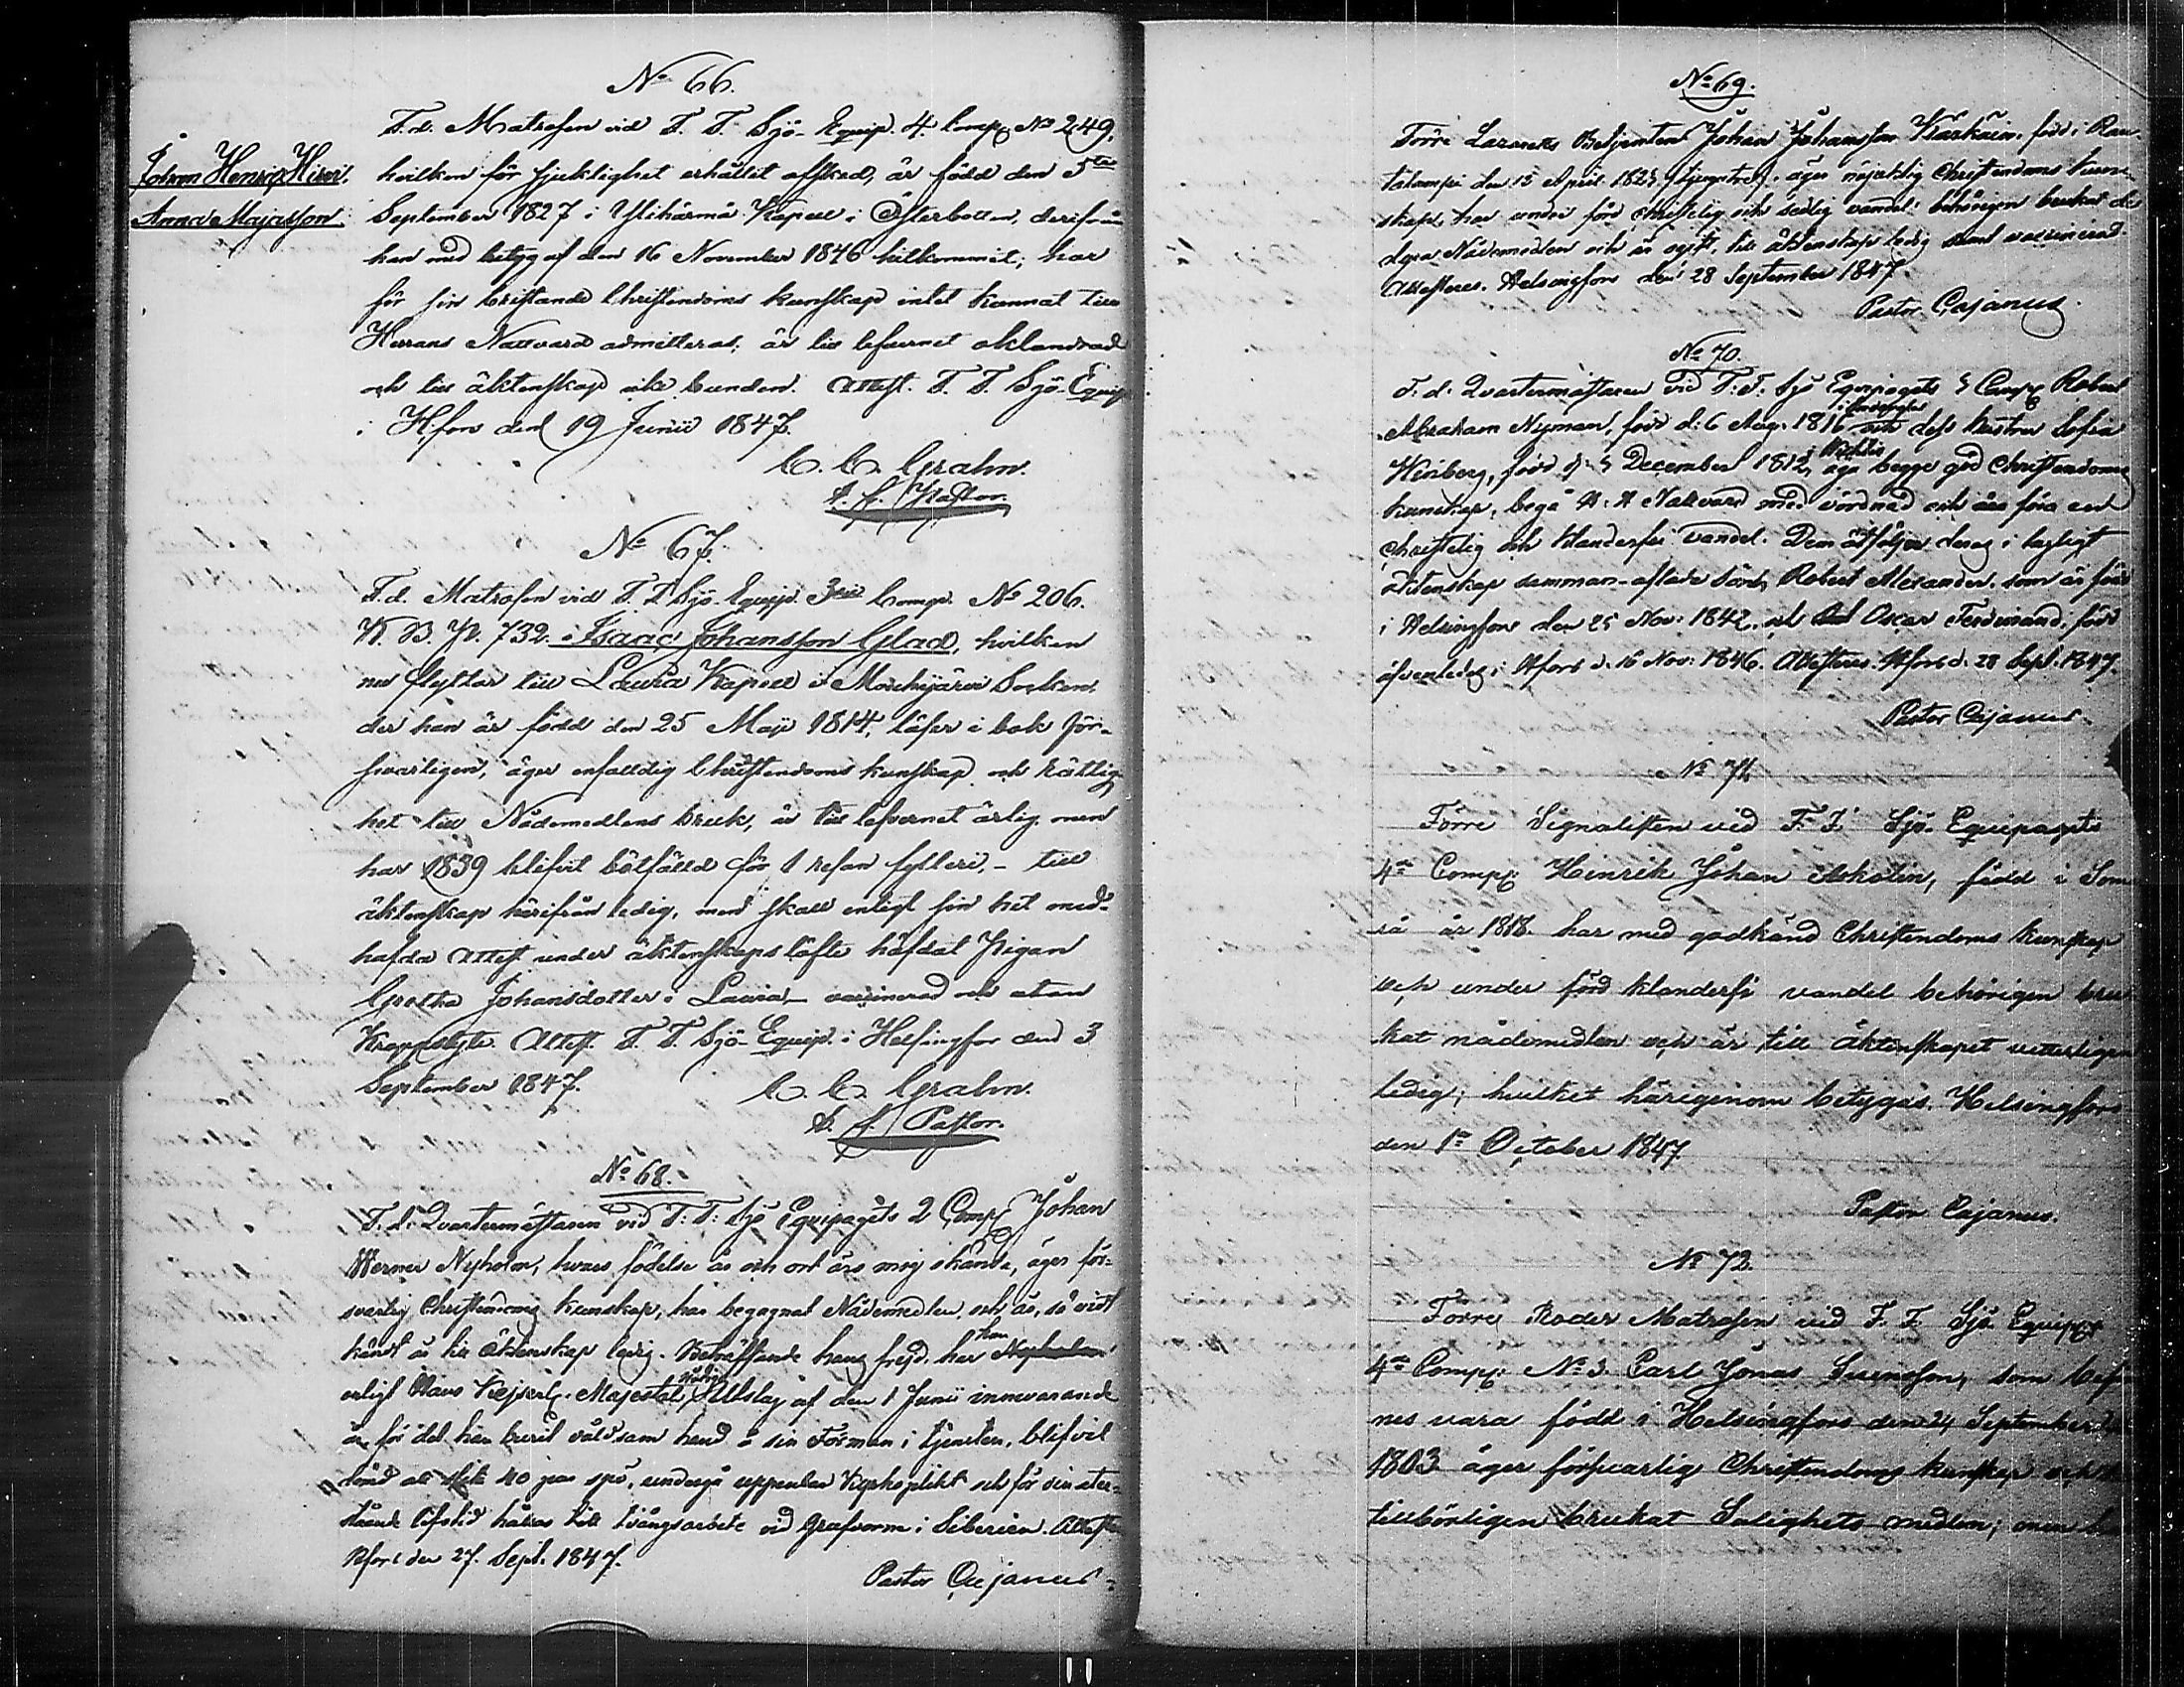 No 66.
F.d. Matrosen vid F. F. Sjö-Equip. 4 Comp. No 249,
Johan Henric
Anna Majasson.
hvilken för sjuklighet erhållit afsked, är född den 5te
September 1827 i Ylihärmä Kapell i Österbotten, derifrån
han med betyg af den 16 November 1846 hitkommit; har
för sin bristande Christendoms kunskap intet kunnat till
Herrans Nattvard admitteras; är till lefvernet oklandrad
och till äktenskap icke bunden. Attest. F. F. Sjö-Equip
i H:fors den 19 Junii 1847.
C. C. Grahn.
t. f. Pastor.
No 67.
F.d. Matrosen vid F. F. Sjö-Equip. 3die Comp. No 206.
K. B. p. 732. Isaac Johansson Glad, hvilken
nu flyttar till Lavia Kapell i Mouhijärvi Socken,
der han är född den 25 Maji 1814, läser i bok för-
svarligen, äger enfalldig Christendoms kunskap och rättig-
het till Nådemedlens bruk, är till lefvernet ärlig, men
har 1839 blifvit bötfälld för 1 resan fylleri, - till
äktenskap härifrån ledig, men skall enligt sin hit med-
hafda Attest under äktenskapslöfte häfdat Pigan
Gretha Johansdotter i Lavia, - vaccinerad och utan
Kroppslyte. Attest. F. F. Sjö-Equip. i Helsingfor den 3
September 1847.
C. C. Grahn.
t. f. Pastor.
No 68.
F. d. Qvartermästaren vid F: F: Sjö Equipagets 2 Comp. Johan
Werner Nyholm, hvars födelse år och ort äro mig okände, äger för-
svarlig Christendoms kunskap, har begagnat Nådemedlen, och är, så vidt
kändt är till äktenskap ledig. Beträffande hans frejd, har han Nyholm
enligt Hans Kejserl. Majestäts Nådiga Utslag af den 1 Junii innevarande
år, för det han burit våldsam hand å sin Förman i tjensten, blifvit
dömd att slita 40 par spö, undergå uppenbar Kyrkoplikt och för sin åter-
stående lifstid hållas till tvångsarbete vid Grufvorne i Siberien. Attesteras
H:fors den 27. Sept. 1847.
Pastor Cajanus
No 69.
Förre Lazaretts Betjenten Johan Johansson, född i Rau-
talampi den 15 April 1823, äger nöjaktig Christendoms kun-
skap, har under förd christelig och sedlig vandel behörigen brukat de
dyra Nådemedlen och är ogift, till äktenskap ledig samt vaccinerad
Attesteras. Helsingfors den 28 September 1847.
Pastor Cajanus.
No 70.
F. d. Qvartermästaren vid F: F: Sjö Equipagets 3 Comp. Robert
Abraham Nyman, född d: 6 Aug. 1816 och dess hustru Sofia
Winberg, född d: 3 December 1812, i Wichtis äga begge god Christendoms
kunskap, begå H. H Nattvard med vördnad och äro föra en
christelig och klanderfri vandel. Dem åtfölja deras i lagligt
äktenskap samman-aflade barn Robert Alexander, som är född
i Helsingfors den 25 Nov: 1842, och Oscar Ferdinand, född
äfvenledes i H:fors d. 16 Nov: 1846. Attesteras H:fors d. 28 Sept. 1847.
Pastor Cajanus
No 71.
Förre Signalisten vid F. F. Sjö-Equipagets
4de Comp. Heinrik Johan född i Som
år 1818. har med godkänd Christendoms kunskap
och under förd klanderfri vandel behörigen bru
kat nådemedlen och är till Äktenskapet vitterligen
ledig; hvilket härigenom betygas. Helsingfors
den 1ta October 1847.
Pastor Cajanus.
No 72.
Förre Matrosen vid F. F. Sjö Equip
4de Comp. No 3. Carl Jonas Svensson, som befin
nes vara född i Helsingfors den 24 September
1803 äger försvarlig Christendoms kunskap och
tillbörligen brukat Salighets-medlen; men